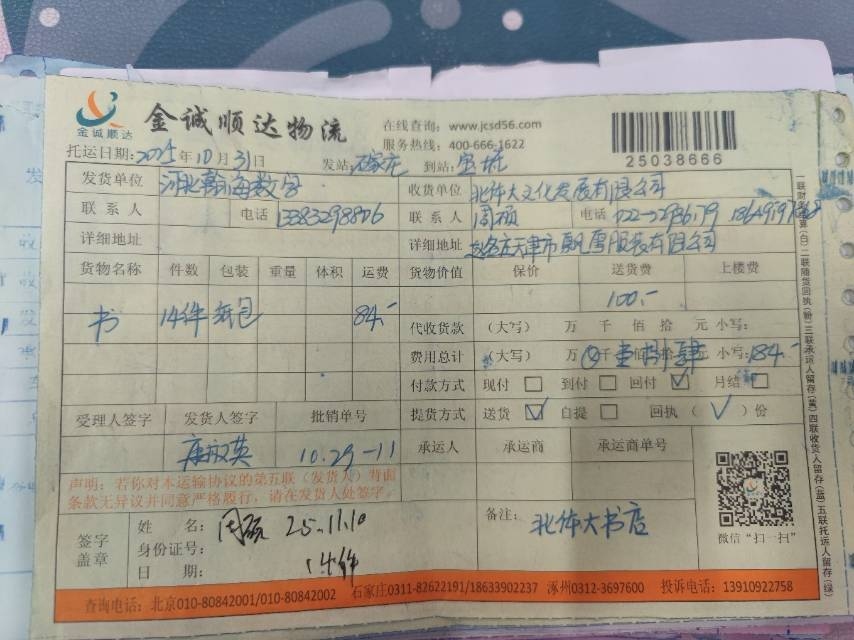 金诚顺达 金诚顺达物流 在线查询：www.jcsd56.com
服务热线：400-666-1622
25038866
托运日期：2025年10月31日 发站：石家庄 到站：宝坻
发货单位 河北瀚海数字 收货单位 北体大文化发展有限公司
联系人 电话 联系人 周硕 电话
详细地址 详细地址 天津市 服装有限公司
货物名称 件数 包装 重量 体积 运费 货物价值 保价 送货费 上楼费
100.-
书 14件 纸包 84.- 代收货款 （大写） 万 仟 佰 拾 元 小写：
费用总计 （大写） 万 仟 壹 捌 肆 小写：184.-
付款方式 现付 到付 回付 ✓ 月结
受理人签字 发货人签字 批销单号 提货方式 送货 ✓ 自提 回执（✓）份
康淑英 10.29-11 承运人 承运商 承运商单号
声明：若你对本运输协议的第五联（发货人）背面
条款无异议并同意严格履行，请在发货人处签字。
签字盖章 姓名：周硕 25.11.10 备注：北体大书店
身份证号：
日期：14件
微信“扫一扫”
一联财务结算(白)二联随货回执(粉)三联承运人留存(黄)四联收货人留存(蓝)五联托运人留存(绿)
查询电话：北京010-80842001/010-80842002 石家庄0311-82622191/18633902237 涿州0312-3697600 投诉电话：13910922758